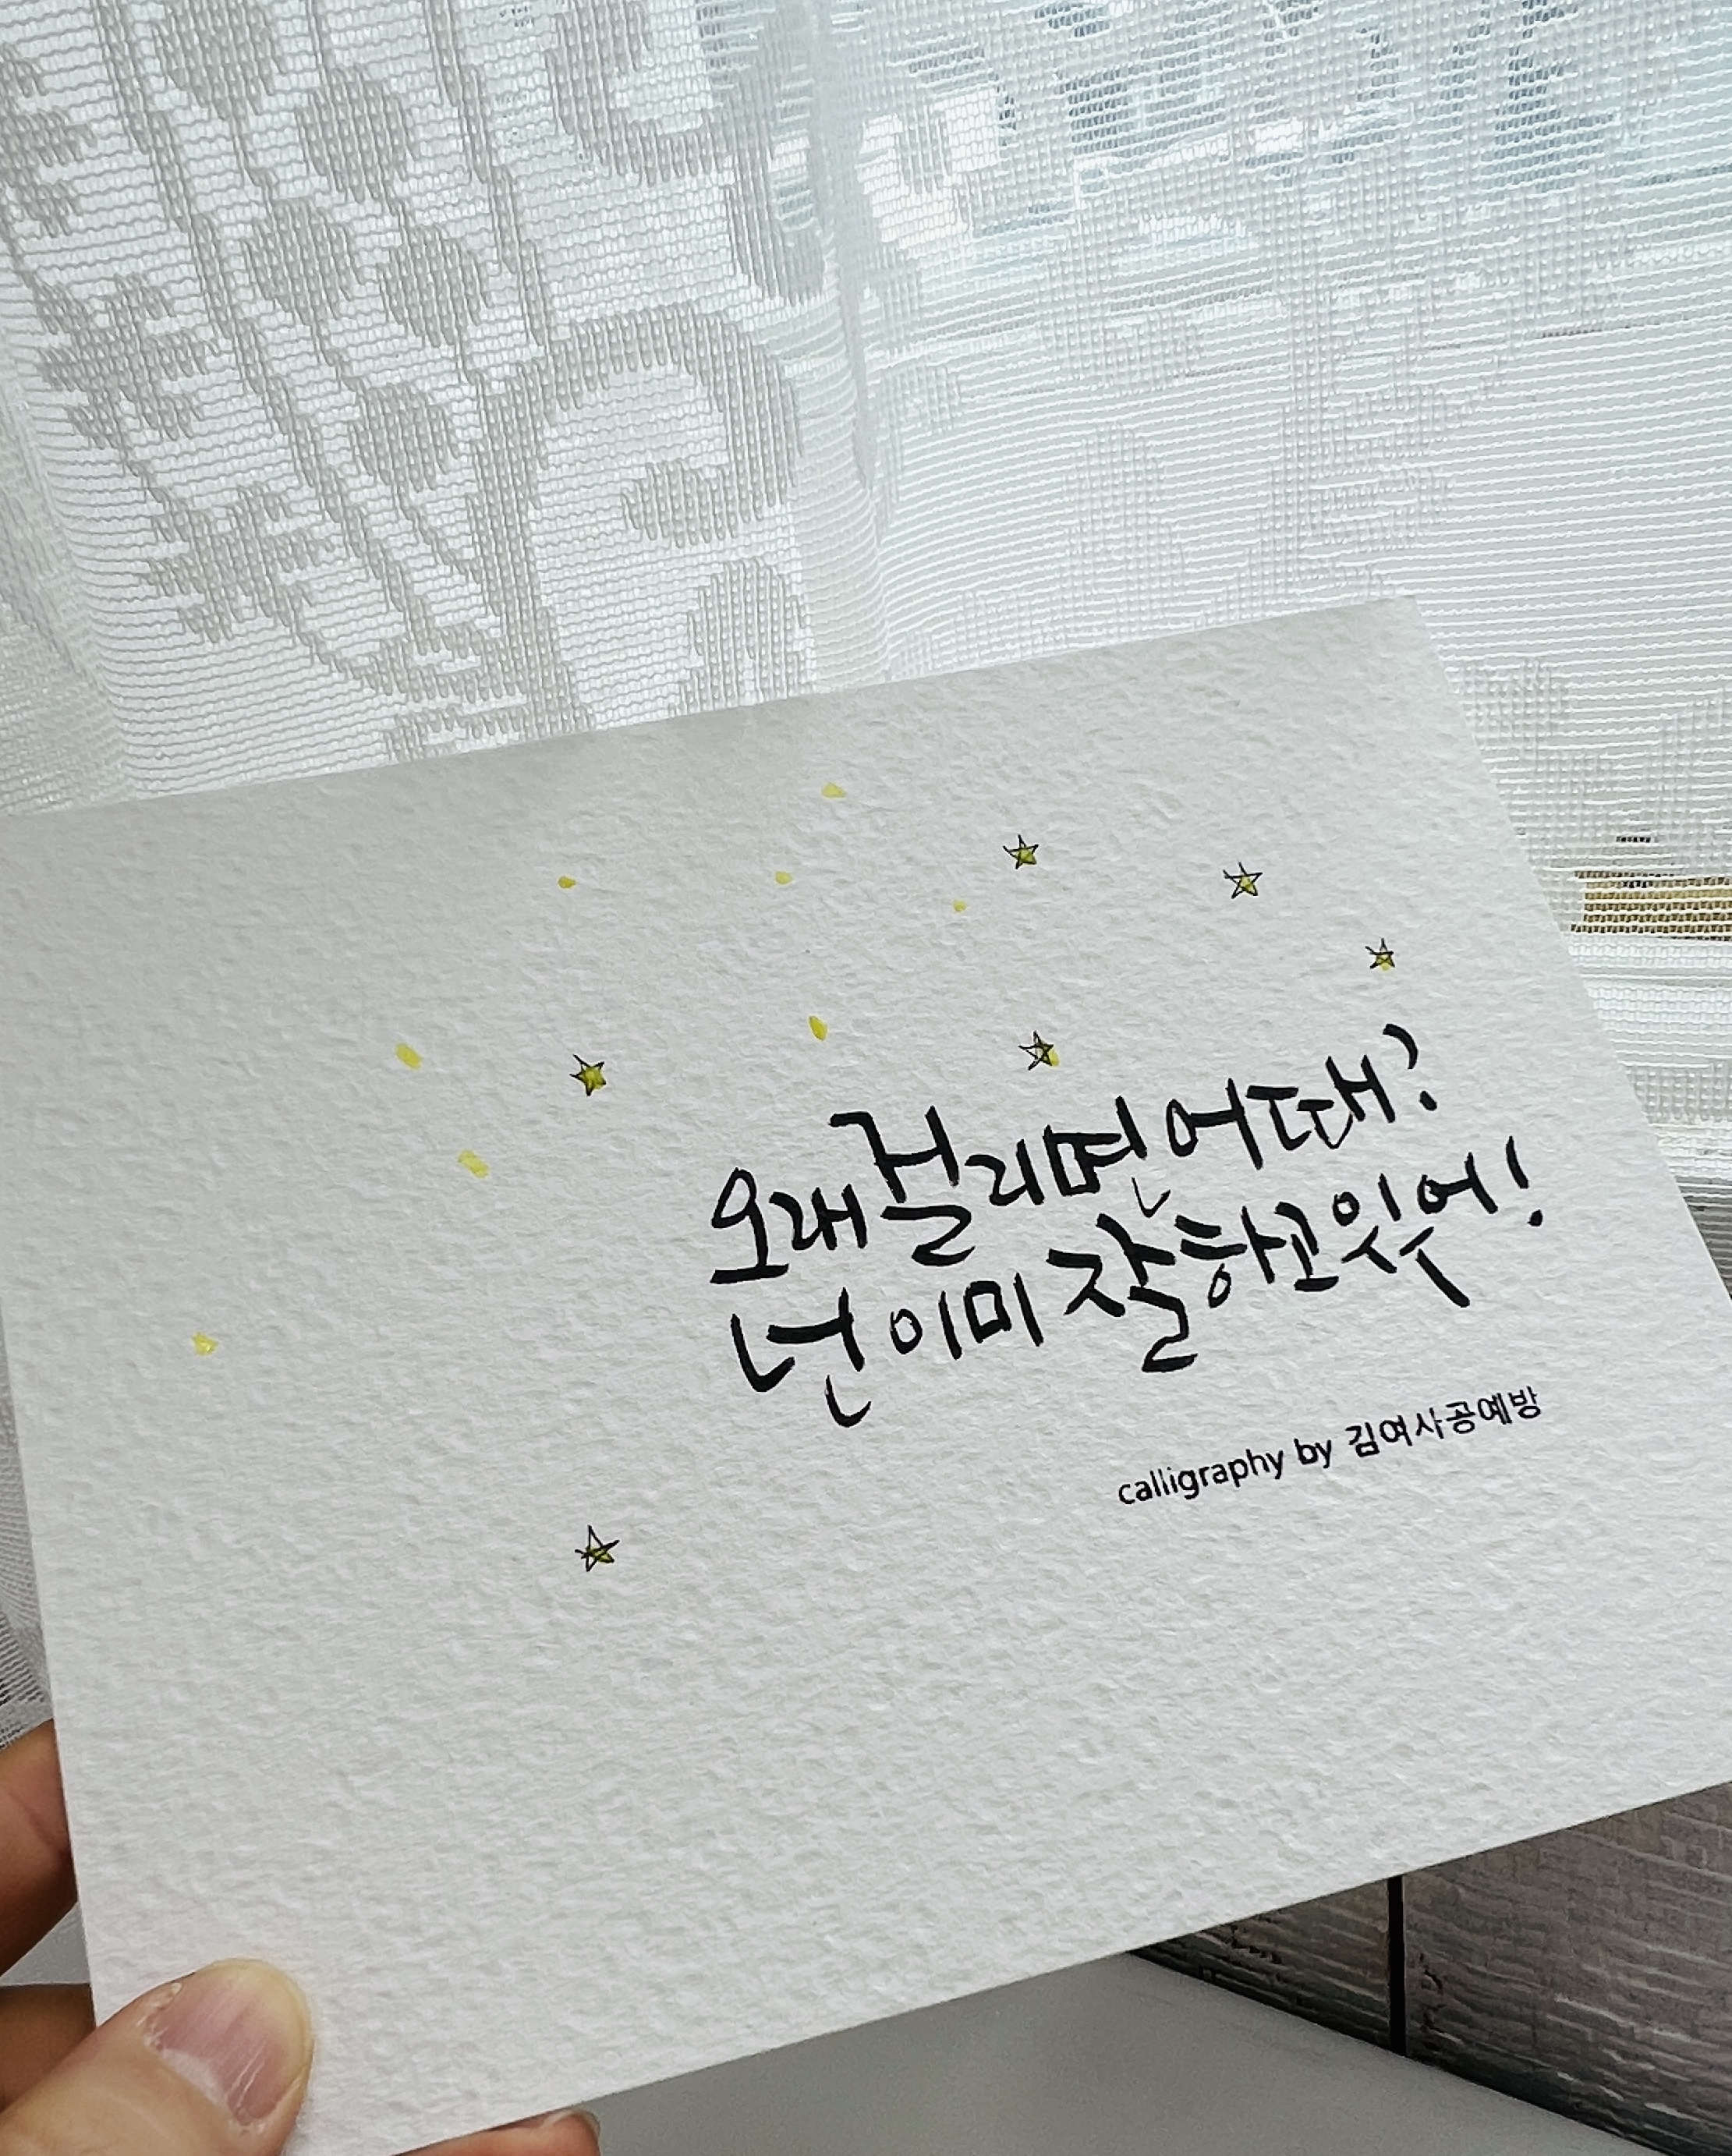 오래 걸리면 어때?
넌 이미 잘하고 있어!
calligraphy by 김여사공예방